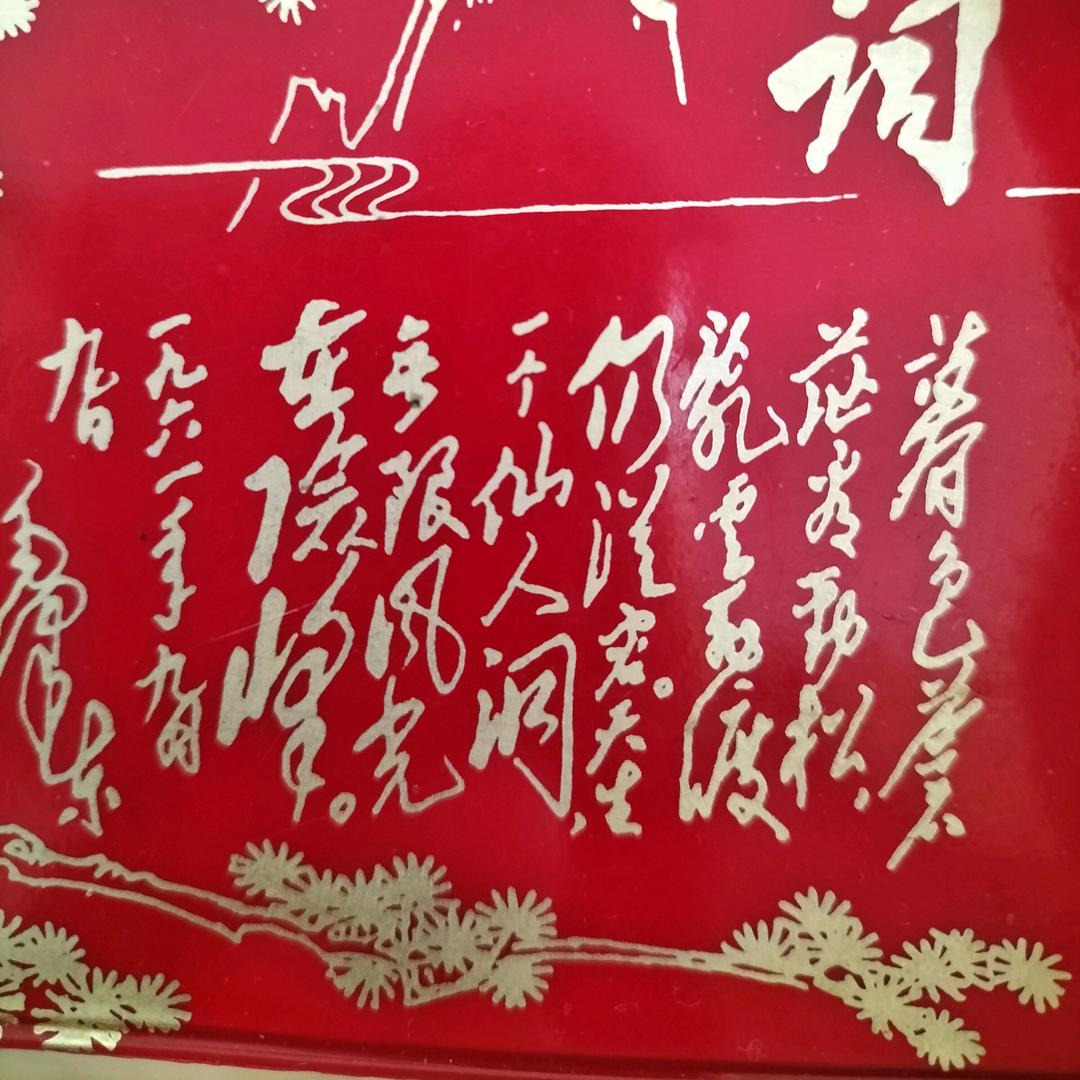 词
暮色苍
茫看劲松,
乱云飞渡
仍从容。天生
一个仙人洞,
无限风光
在险峰。
一九六一年九月
九日
毛泽东